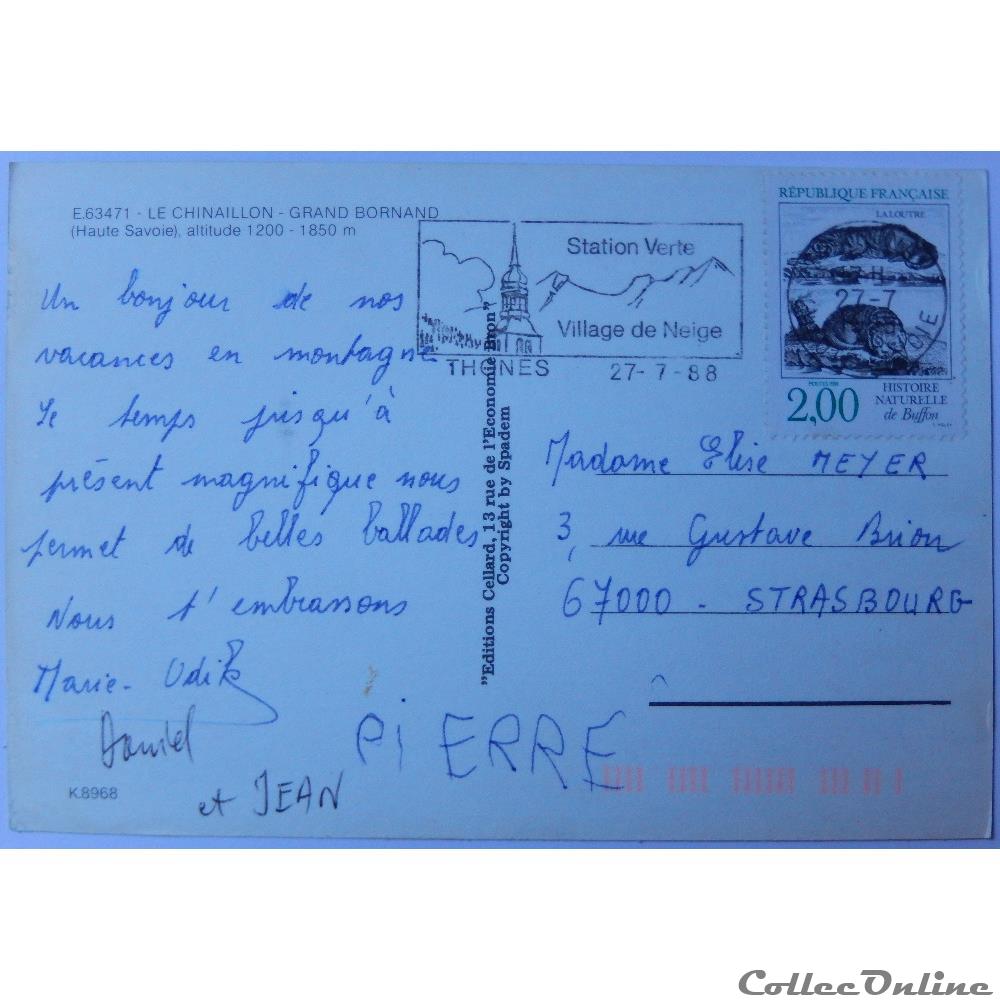 E.63471 - LE CHINAILLON - GRAND BORNAND
(Haute Savoie), altitude 1200 - 1850 m
Un bonjour de nos
vacances en montagne
Le temps jusqu'à
présent magnifique nous
permet de belles ballades
Nous t'embrassons
Marie-Odile
Daniel
et JEAN
PiERRE
K.8968
"Editions Cellard, 13 rue de l'Economie Bron"
Copyright by Spadem
Station Verte
Village de Neige
THONES 27-7-88
RÉPUBLIQUE FRANÇAISE
LA LOUTRE
27-7
2,00
HISTOIRE
NATURELLE
de Buffon
Madame Elise MEYER
3, rue Gustave Brion
67000 - STRASBOURG
CollecOnline